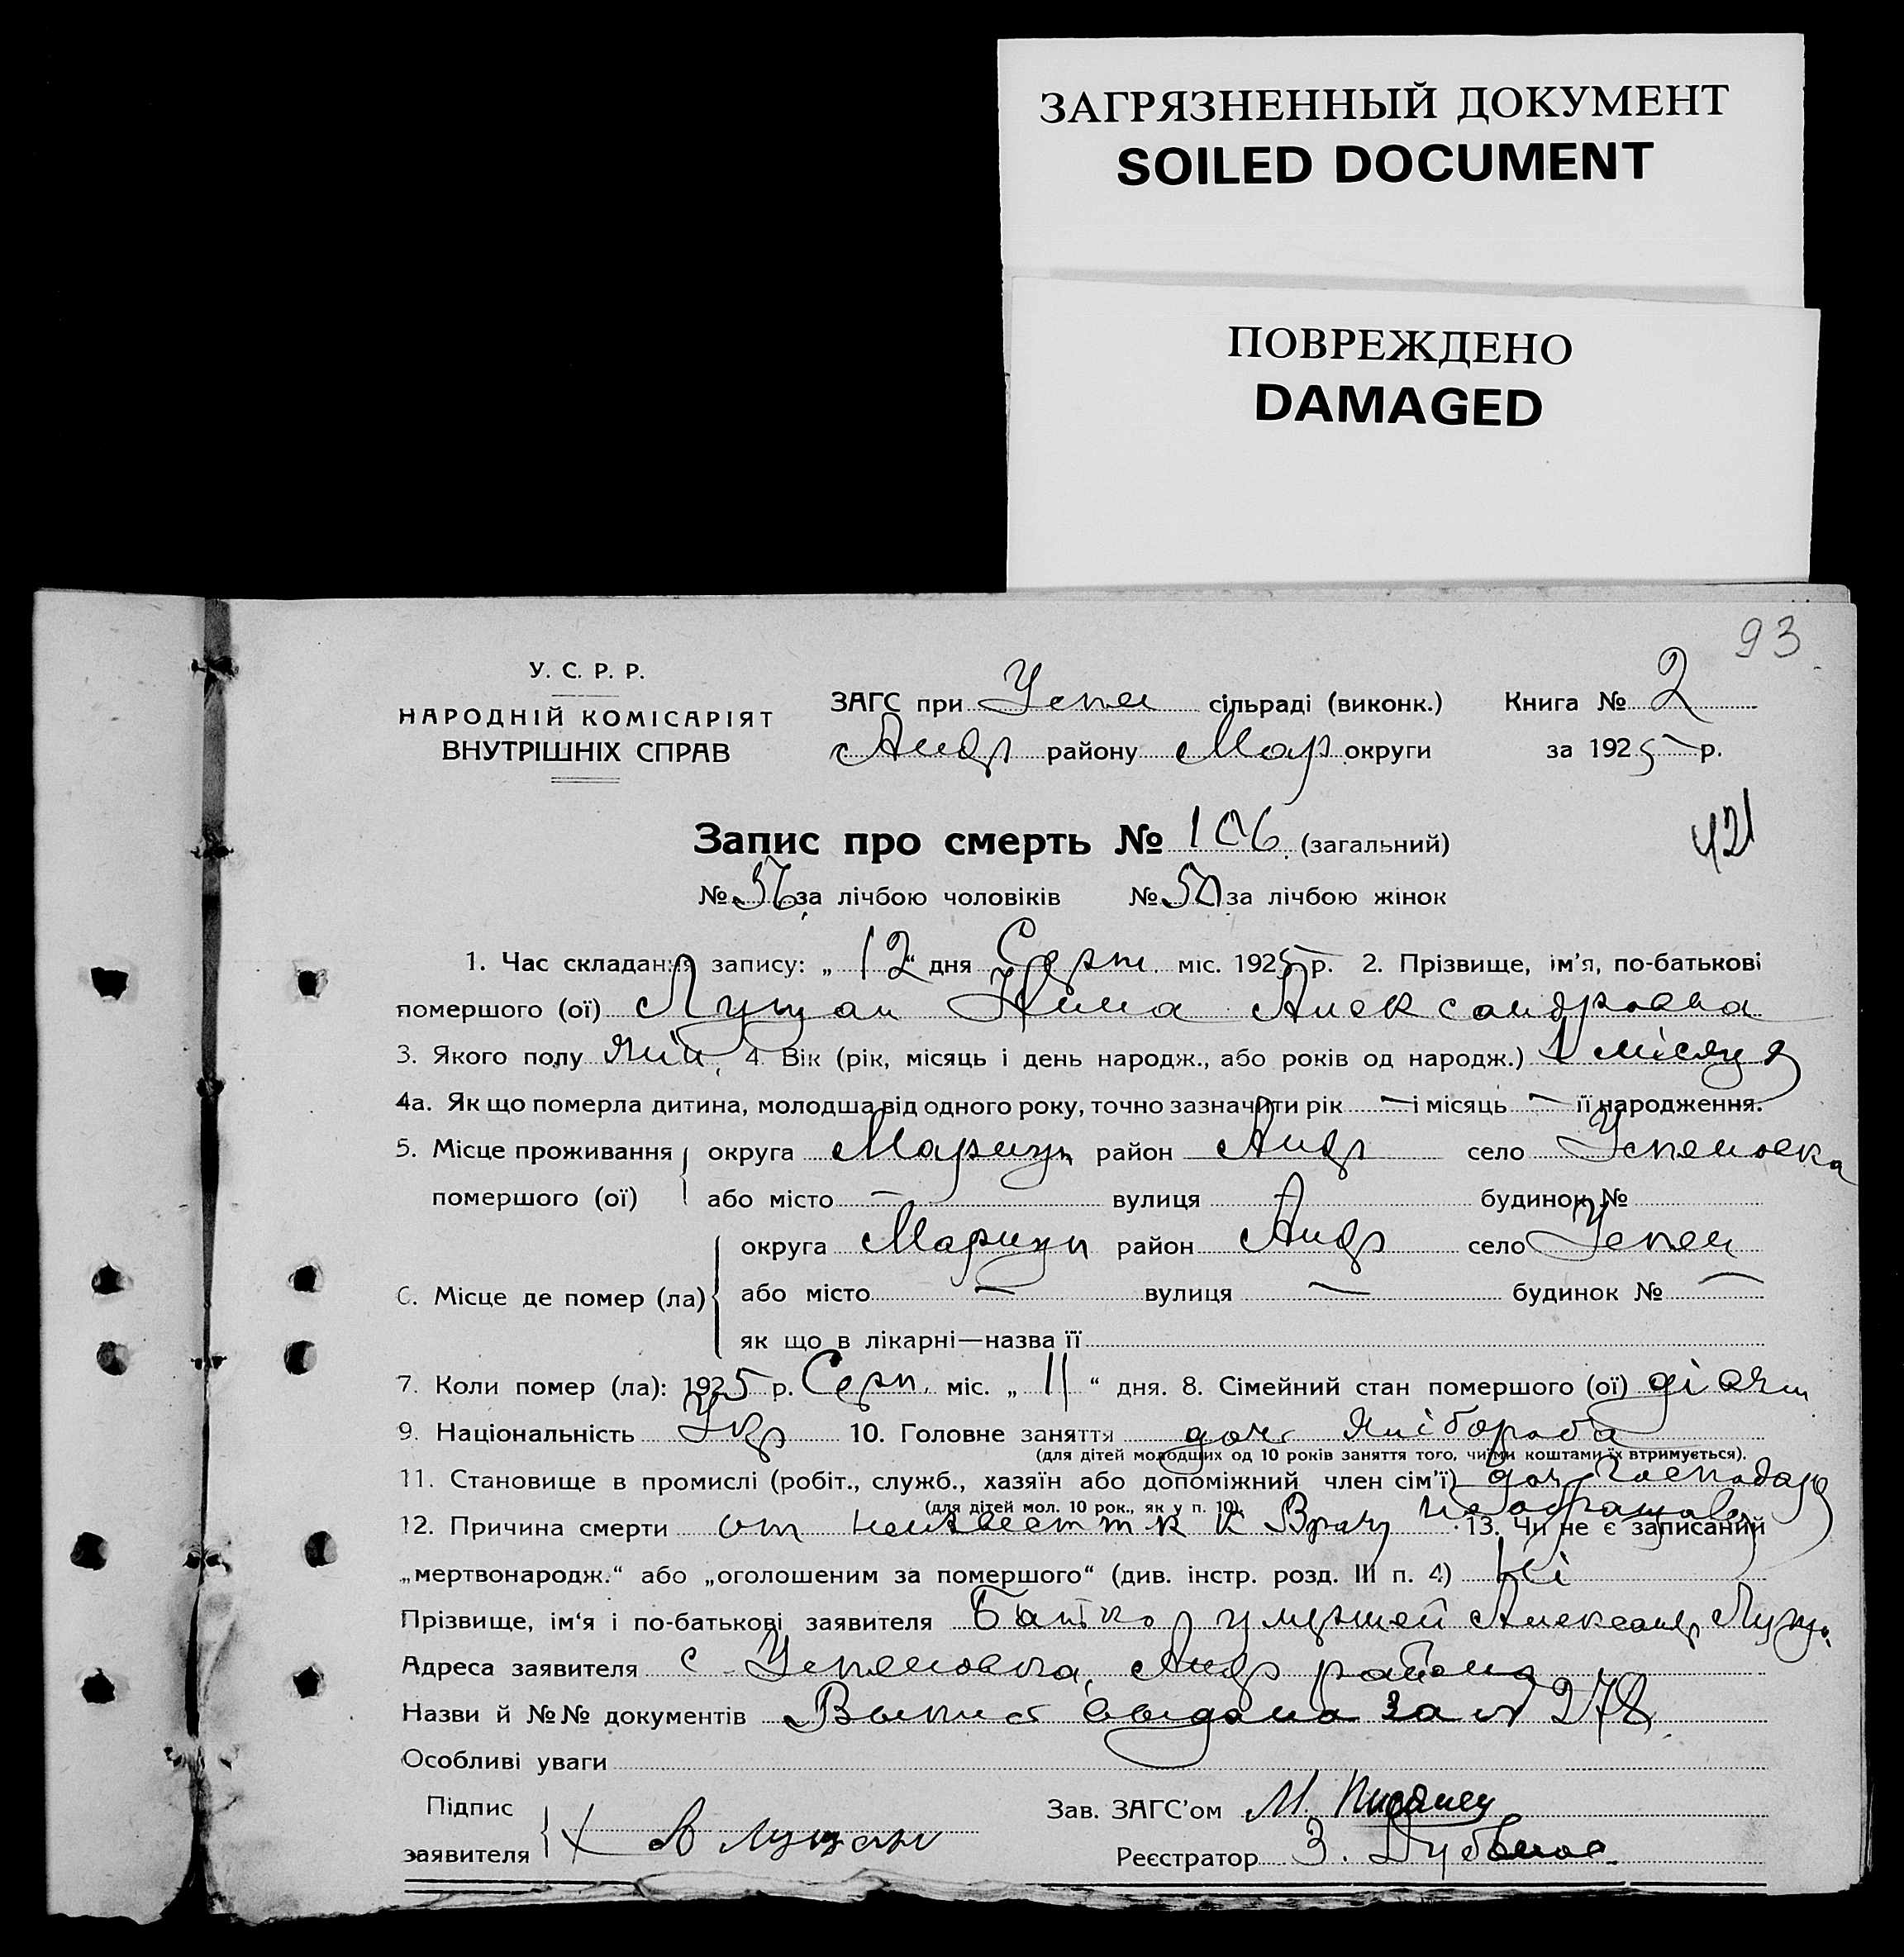 ЗАГРЯЗНЕННЫЙ ДОКУМЕНТ
SOILED DOCUMENT
ПОВРЕЖДЕНО
DAMAGED
93
У. С. Р. Р.
НАРОДНІЙ КОМІСАРІЯТ
ВНУТРІШНІХ СПРАВ
ЗАГС при Успен сільраді (виконк.) Книга № 2
Андр району Мар округи за 1925 р.
421
Запис про смерть № 106 (загальний)
№ 56 за лічбою чоловіків № 50 за лічбою жінок
1. Час складання запису: „ 12 “ дня Серп. міс. 1925 р. 2. Прізвище, ім’я, по-батькові
помершого (ої) Лущан Нина Александровна
3. Якого полу 4. Вік (рік, місяць і день народж., або років од народж.) 1 місяця
4а. Як що померла дитина, молодша від одного року, точно зазначити рік — і місяць — її народження.
5. Місце проживання округа Мариуп район Андр село Успеновка
помершого (ої) або місто — вулиця будинок №
округа Мариуп район Андр село Успен
6. Місце де помер (ла) або місто — вулиця — будинок № —
як що в лікарні—назва її
7. Коли помер (ла): 1925 р. Серп. міс. „ 11 “ дня. 8. Сімейний стан помершого (ої)
9. Національність Укр 10. Головне заняття доч. хлібороба
(для дітей молодших од 10 років заняття того, чиїми коштами їх втримується).
11. Становище в промислі (робіт., служб., хазяїн або допоміжний член сім’ї) доч. господаря
(для дітей мол. 10 рок., як у п. 10).
12. Причина смерти от неизвестн к Врачу не обращавсь 13. Чи не є записаний
„мертвонародж.“ або „оголошеним за помершого“ (див. інстр. розд. III п. 4) Ні
Прізвище, ім’я і по-батькові заявителя Батько умершей Александр Лущан
Адреса заявителя с. Успеновка, Андр района
Назви й №№ документів Выпись выдана за № 278
Особливі уваги
Підпис
заявителя А Лущан
Зав. ЗАГС’ом М.
Реєстратор З.